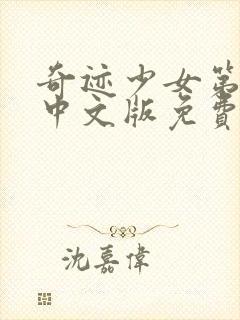 奇迹少女第
中文版免費
沈嘉偉